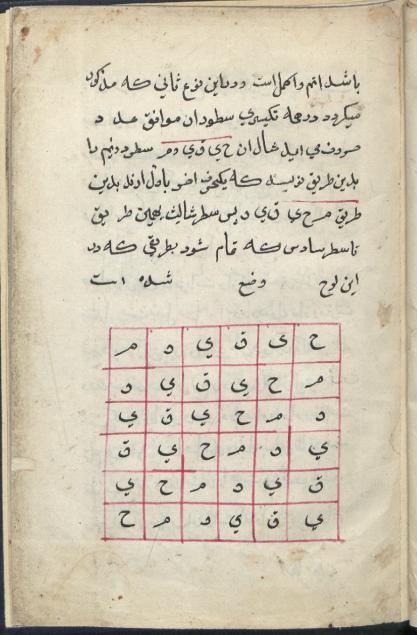 باشد اتم و اکمل است و در این نوع ثانی که مذکور
میکردد درجه تکسیری سطور ان موافق عدد
حروف می اید مثال ان ح ی ق ی و م سطر دویم را
بدین طریق نویسند که یکحرف اخر با اول ارند بدین
طریق م ح ی ق ی و پس سطر ثالث بهمین طریق
تا سطر سادس که تمام شود بطریقی که در
این لوح وضع شده است
ح ی ق ی و م
م ح ی ق ی و
و م ح ی ق ی
ی و م ح ی ق
ق ی و م ح ی
ی ق ی و م ح